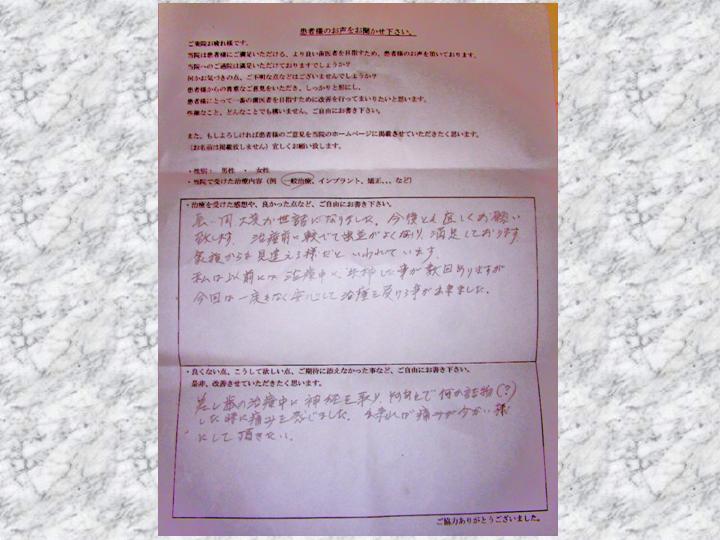 患者様のお声をお聞かせ下さい。
ご来院お疲れ様です。
当院は患者様にご満足いただける、より良い歯医者を目指すため、患者様のお声を頂いております。
当院へのご通院は満足いただけておりますでしょうか?
何かお気づきの点、ご不明な点などはございませんでしょうか?
患者様からの貴重なご意見をいただき、しっかりと形にし、
患者様にとって一番の歯医者を目指すために改善を行ってまいりたいと思います。
些細なこと、どんなことでも構いません、ご自由にお書き下さい。
また、もしよろしければ患者様のご意見を当院のホームページに掲載させていただきたく思います。
(お名前は掲載致しません) 宜しくお願い致します。
・性別: 男性 ・ 女性
・当院で受けた治療内容(例 一般治療、インプラント、矯正、、、など)
・治療を受けた感想や、良かった点など、ご自由にお書き下さい。
長い間大変お世話になりました。今後とも宜しくお願い
致します。治療前に較べて歯並がよくなり、満足しております。
家族からも見違える様だといわれています。
私は以前には治療中に失神した事が数回ありますが
今回は一度もなく安心して治療を受ける事が出来ました。
・良くない点、こうして欲しい点、ご期待に添えなかった事など、ご自由にお書き下さい。
是非、改善させていただきたく思います。
差し歯の治療中に神経を取り、何かの詰物(?)
した時に痛みを感じました。出来れば痛みが少ない様
にして頂きたい。
ご協力ありがとうございました。